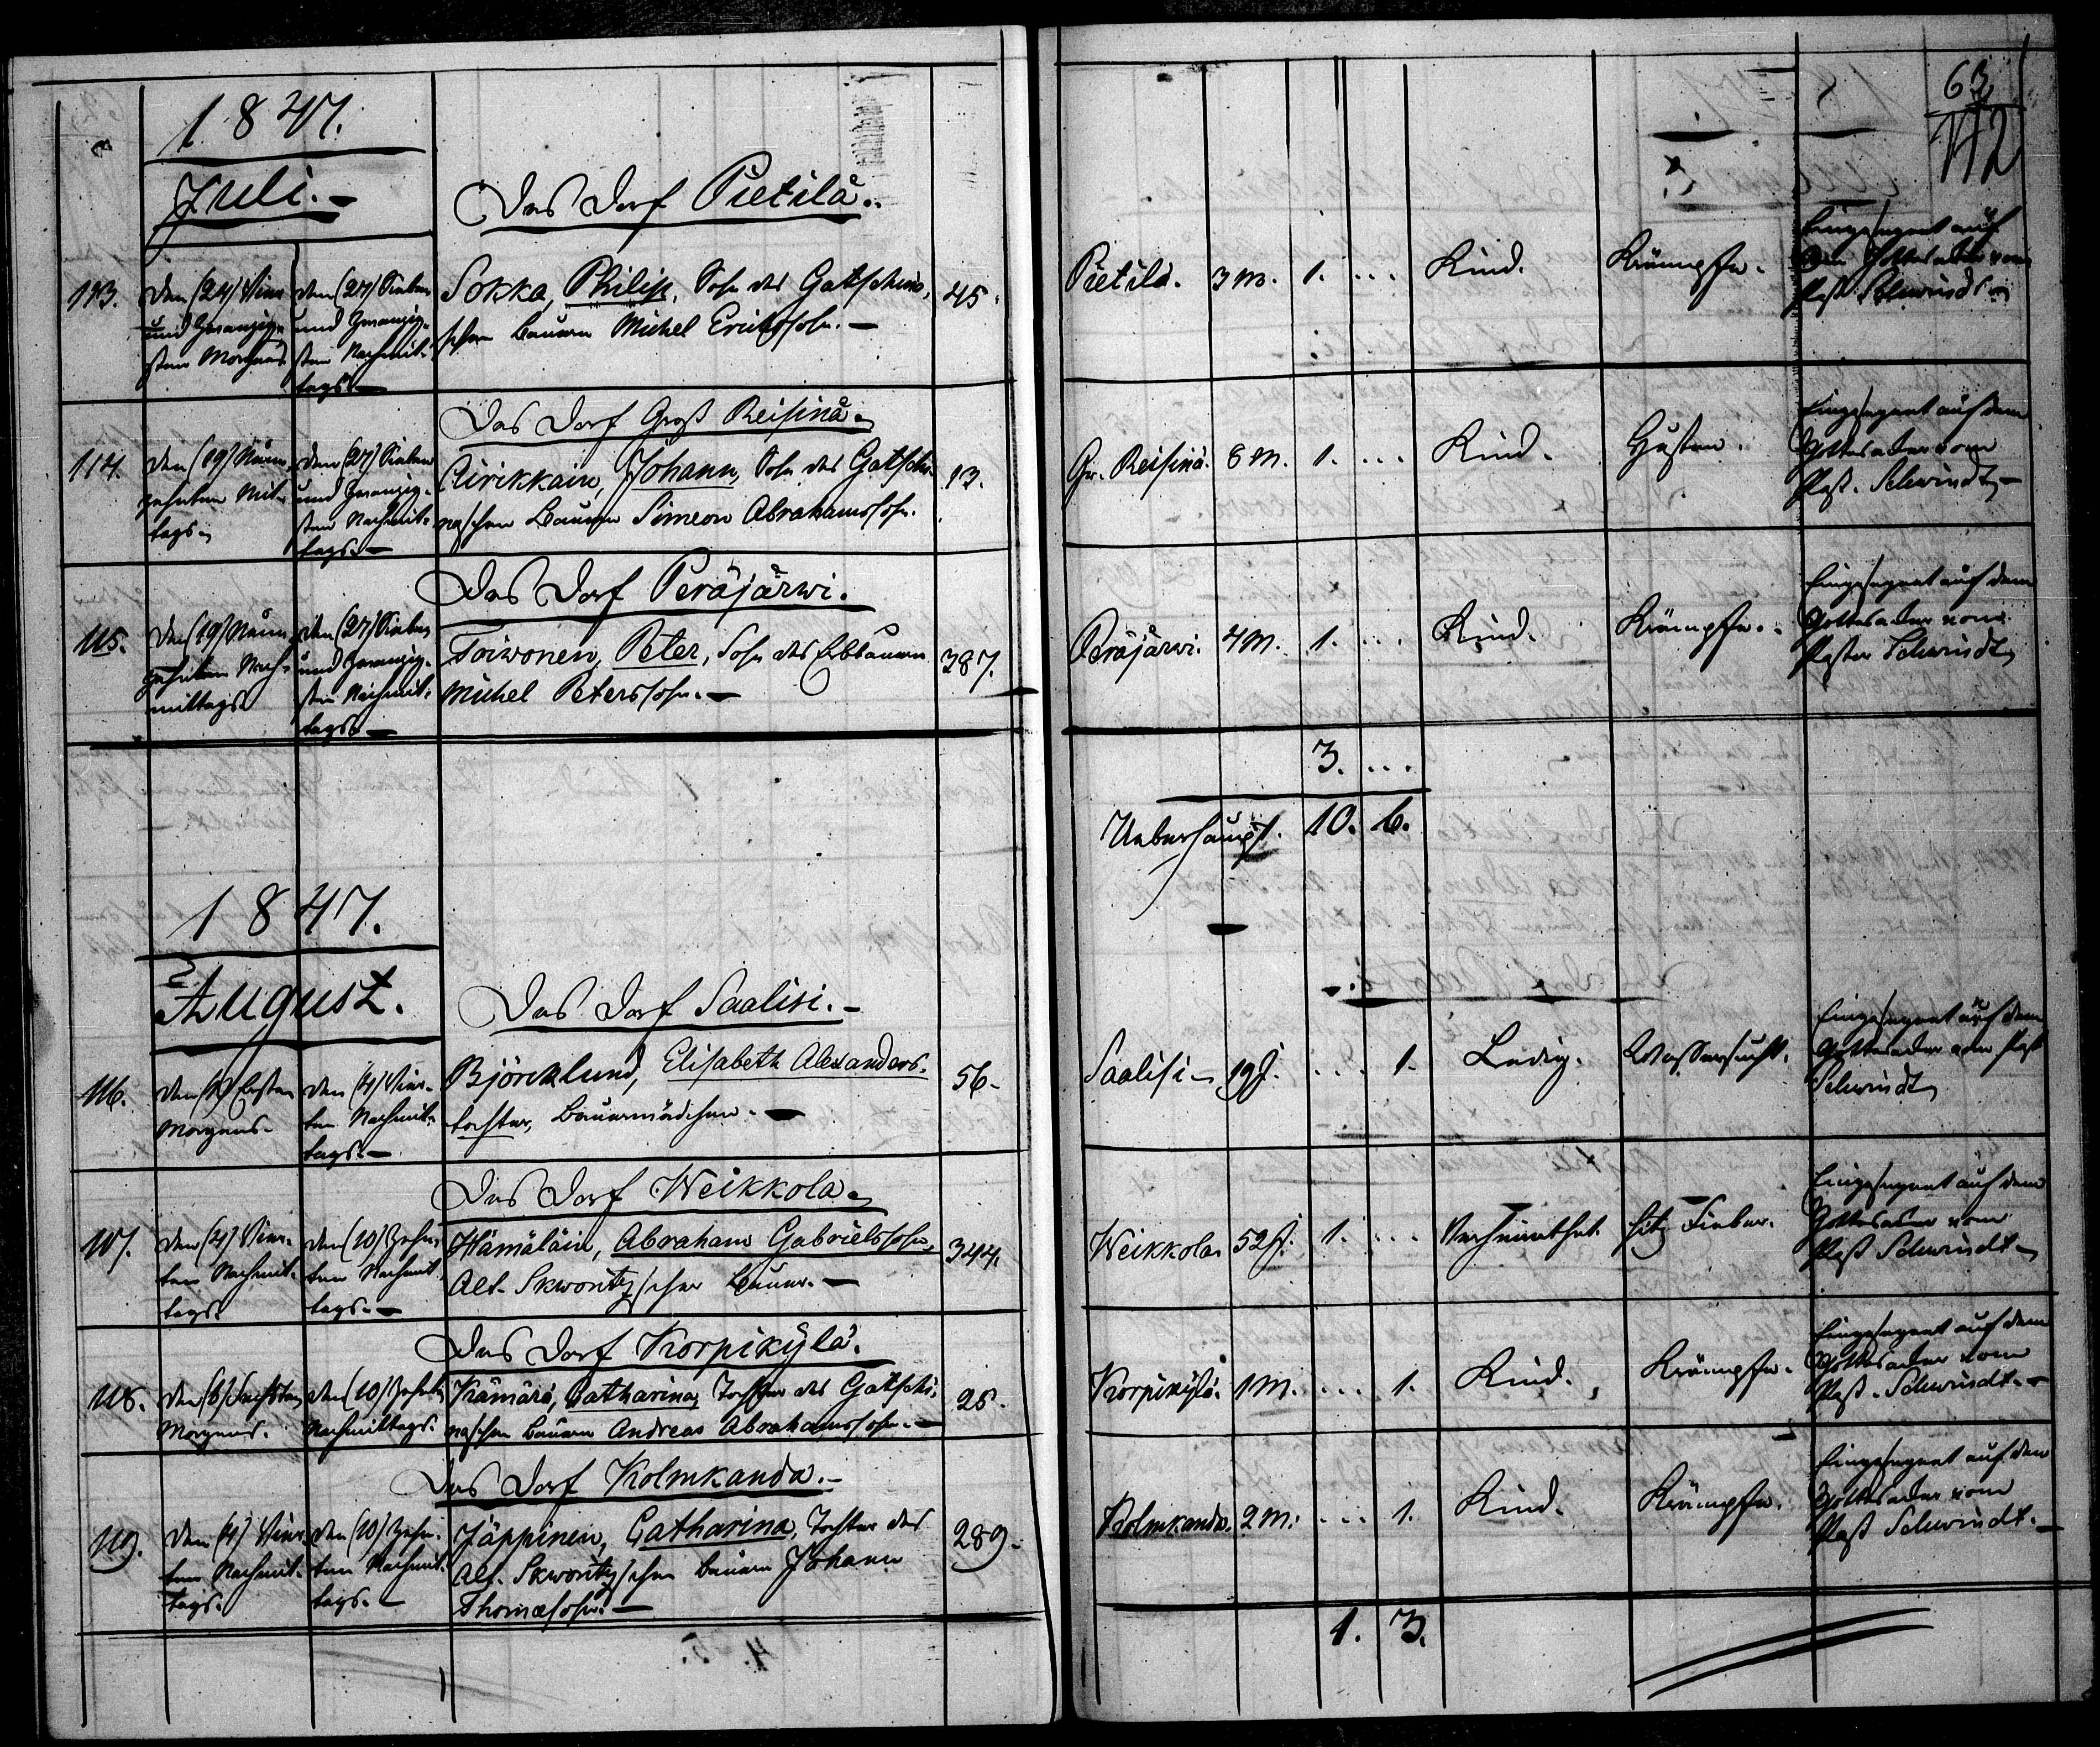 63
112
1847.
Juli.-
Das Dorf Pietilä.
113.
Den (24) Vier
und zwanzig-
sten Morgens
den (27) Sieben
und zwanzig-
sten Nachmit-
tags.-
Sokka, Philip, Sohn des Gatschina-
schen Bauern Michel Erichssohn.-
45.
Pietilä. 3 M. 1. ... Kind. Krämpfe.
Eingesegnet auf
dem Gottesacker vom
Past. Schwindt
Das Dorf Groß Reisinä.
114.
Den (19) Neun-
zehnten Mit-
tags.
den (27) Sieben
und zwanzig-
sten Nachmit-
tags.-
Johann, Sohn des Gatschi-
naschen Bauern Simeon Abrahamssohn.
13.
Gr. Reisinä. 8 M. 1. ... Kind. Husten.
Eingesegnet auf dem
Gottesacker vom
Past. Schwindt.-
Das Dorf Peräjärwi.
115.
Den (19) Neun-
zehnten Nach-
mittags
den (27) Sieben
und zwanzig-
sten Nachmit-
tags.-
Toiwonen, Peter, Sohn des Erbbauern
Michel Peterssohn.-
387.
Peräjärwi. 4 M. 1. ... Kind. Krämpfe.
Eingesegnet auf dem
Gottesacker vom
Pastor Schwindt
3. ...
Ueberhaupt. 10. 6.
1847.
August.
Das Dorf Saalisi.-
116.
Den (1) Ersten
Morgens.
den (4) Vier-
ten Nachmit-
tags.-
Björcklund, Elisabeth Alexanders-
tochter, Bauermädchen.-
56.
Saalisi 19 J. ... 1. Ledig. Wassersucht.
Eingesegnet auf dem
Gottesacker vom Past
Schwindt
Das Dorf Weikkola.
117.
Den (4) Vier-
ten Nachmit-
tags.
den (10) Zehn-
ten Nachmit-
tags.-
Hämäläin, Abraham Gabrielssohn,
Alt-Skworitzscher Bauer.-
344.
Weikkola 52 J. 1. ... Verheirathet. hitz. Fieber.
Eingesegnet auf dem
Gottesacker vom
Past Schwindt
Das Dorf Korpikylä.
118.
Den (6) Sechsten
Morgens.
den (10) Zehnten
Nachmittags.
Kämärä, Catharina, Tochter des Gatschi-
naschen Bauern Andreas Abrahamssohn.-
25.
Korpikylä. 1 M. ... 1. Kind. Krämpfe.
Eingesegnet auf dem
Gottesacker vom
Past. Schwindt.-
Das Dorf Kolmkanda.-
119.
Den (4) Vier-
ten Nachmit-
tags.
den (10) Zehn-
ten Nachmit-
tags.-
Jäppinen, Catharina, Tochter des
Alt-Skworitzschen Bauern Johann
Thomassohn.-
289.
Kolmkanda. 2 M. ... 1. Kind. Krämpfe.
Eingesegnet auf dem
Gottesacker vom
Past Schwindt.-
1. 3.